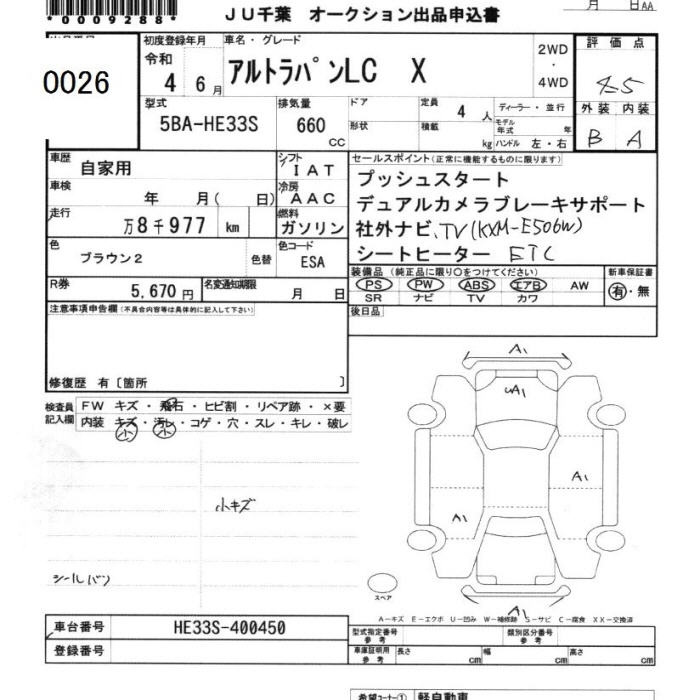 *0009288*
月 日AA
JU千葉 オークション出品申込書
0026
初度登録年月 車名・グレード 評価点
令和 4 6月 アルトラパンLC X 2WD・4WD 4.5
外装 内装
型式 排気量 ドア 定員 4人 ディーラー・並行
5BA-HE33S 660CC 形状 積載 kg モデル年式 年 ハンドル 左・右 B A
車歴 自家用 シフト IAT
セールスポイント(正常に機能するものに限ります)
車検 年 月( 日) 冷房 AAC
プッシュスタート
デュアルカメラブレーキサポート
走行 万8千977 km 燃料 ガソリン
社外ナビ、TV(KXM-E506W)
色 ブラウン2 色替 色コード ESA
シートヒーター ETC
装備品(純正品に限り○をつけてください) 新車保証書
PS PW ABS エアB AW 有・無
SR ナビ TV カワ
R券 5,670円 名変通知期限 月 日
後日品
注意事項申告欄(不具合内容等は具体的に記入して下さい)
修復歴 有〔箇所 〕
検査員記入欄 FW キズ・飛石・ヒビ割・リペア跡・×要
内装 キズ・汚レ・コゲ・穴・スレ・キレ・破レ
小 小
A1
A1
A1
A1
A1
小キズ
シールバン
スペア
A-キズ E-エクボ U-凹み W-補修跡 S-サビ C-腐食 XX-交換済
車台番号 HE33S-400450
型式指定番号 参考 類別区分番号 参考
登録番号
車庫証明用 参考 長さ cm 幅 cm 高さ cm
希望コーナー① 軽自動車